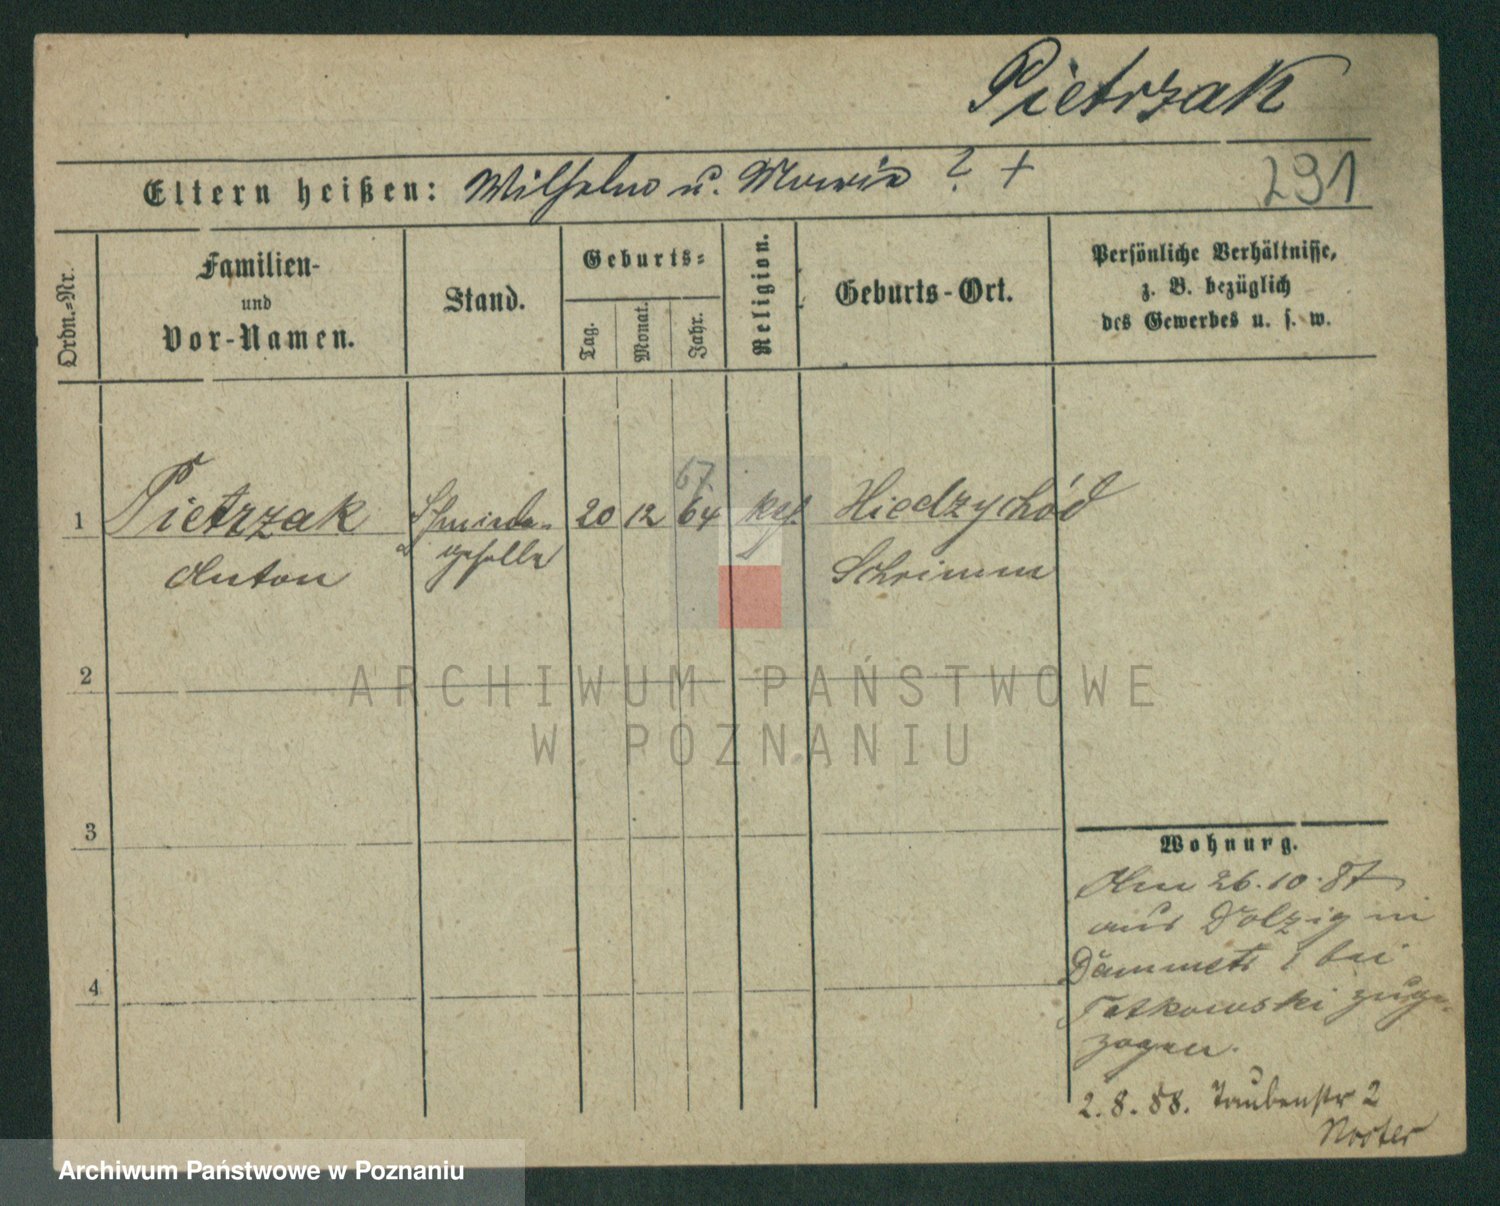 Pietrzak
Eltern heißen: Wilhelm u. Marie ? +
291
Ordn.-Nr.
Familien-
und
Vor-Namen.
Stand.
Geburts-
Tag.
Monat.
Jahr.
Religion.
Geburts-Ort.
Persönliche Verhältnisse,
z. B. bezüglich
des Gewerbes u. s. w.
67
1 Pietrzak Schmiede- 20 12 64 kgl. Hiedzychód
Anton geselle Schrimm
2
3
4
Wohnurg.
Am 26.10.87
aus Dolzig in
bei
zuge-
zogen.
2.8.88. Taubenstr 2
ARCHIWUM PAŃSTWOWE
W POZNANIU
Archiwum Państwowe w Poznaniu